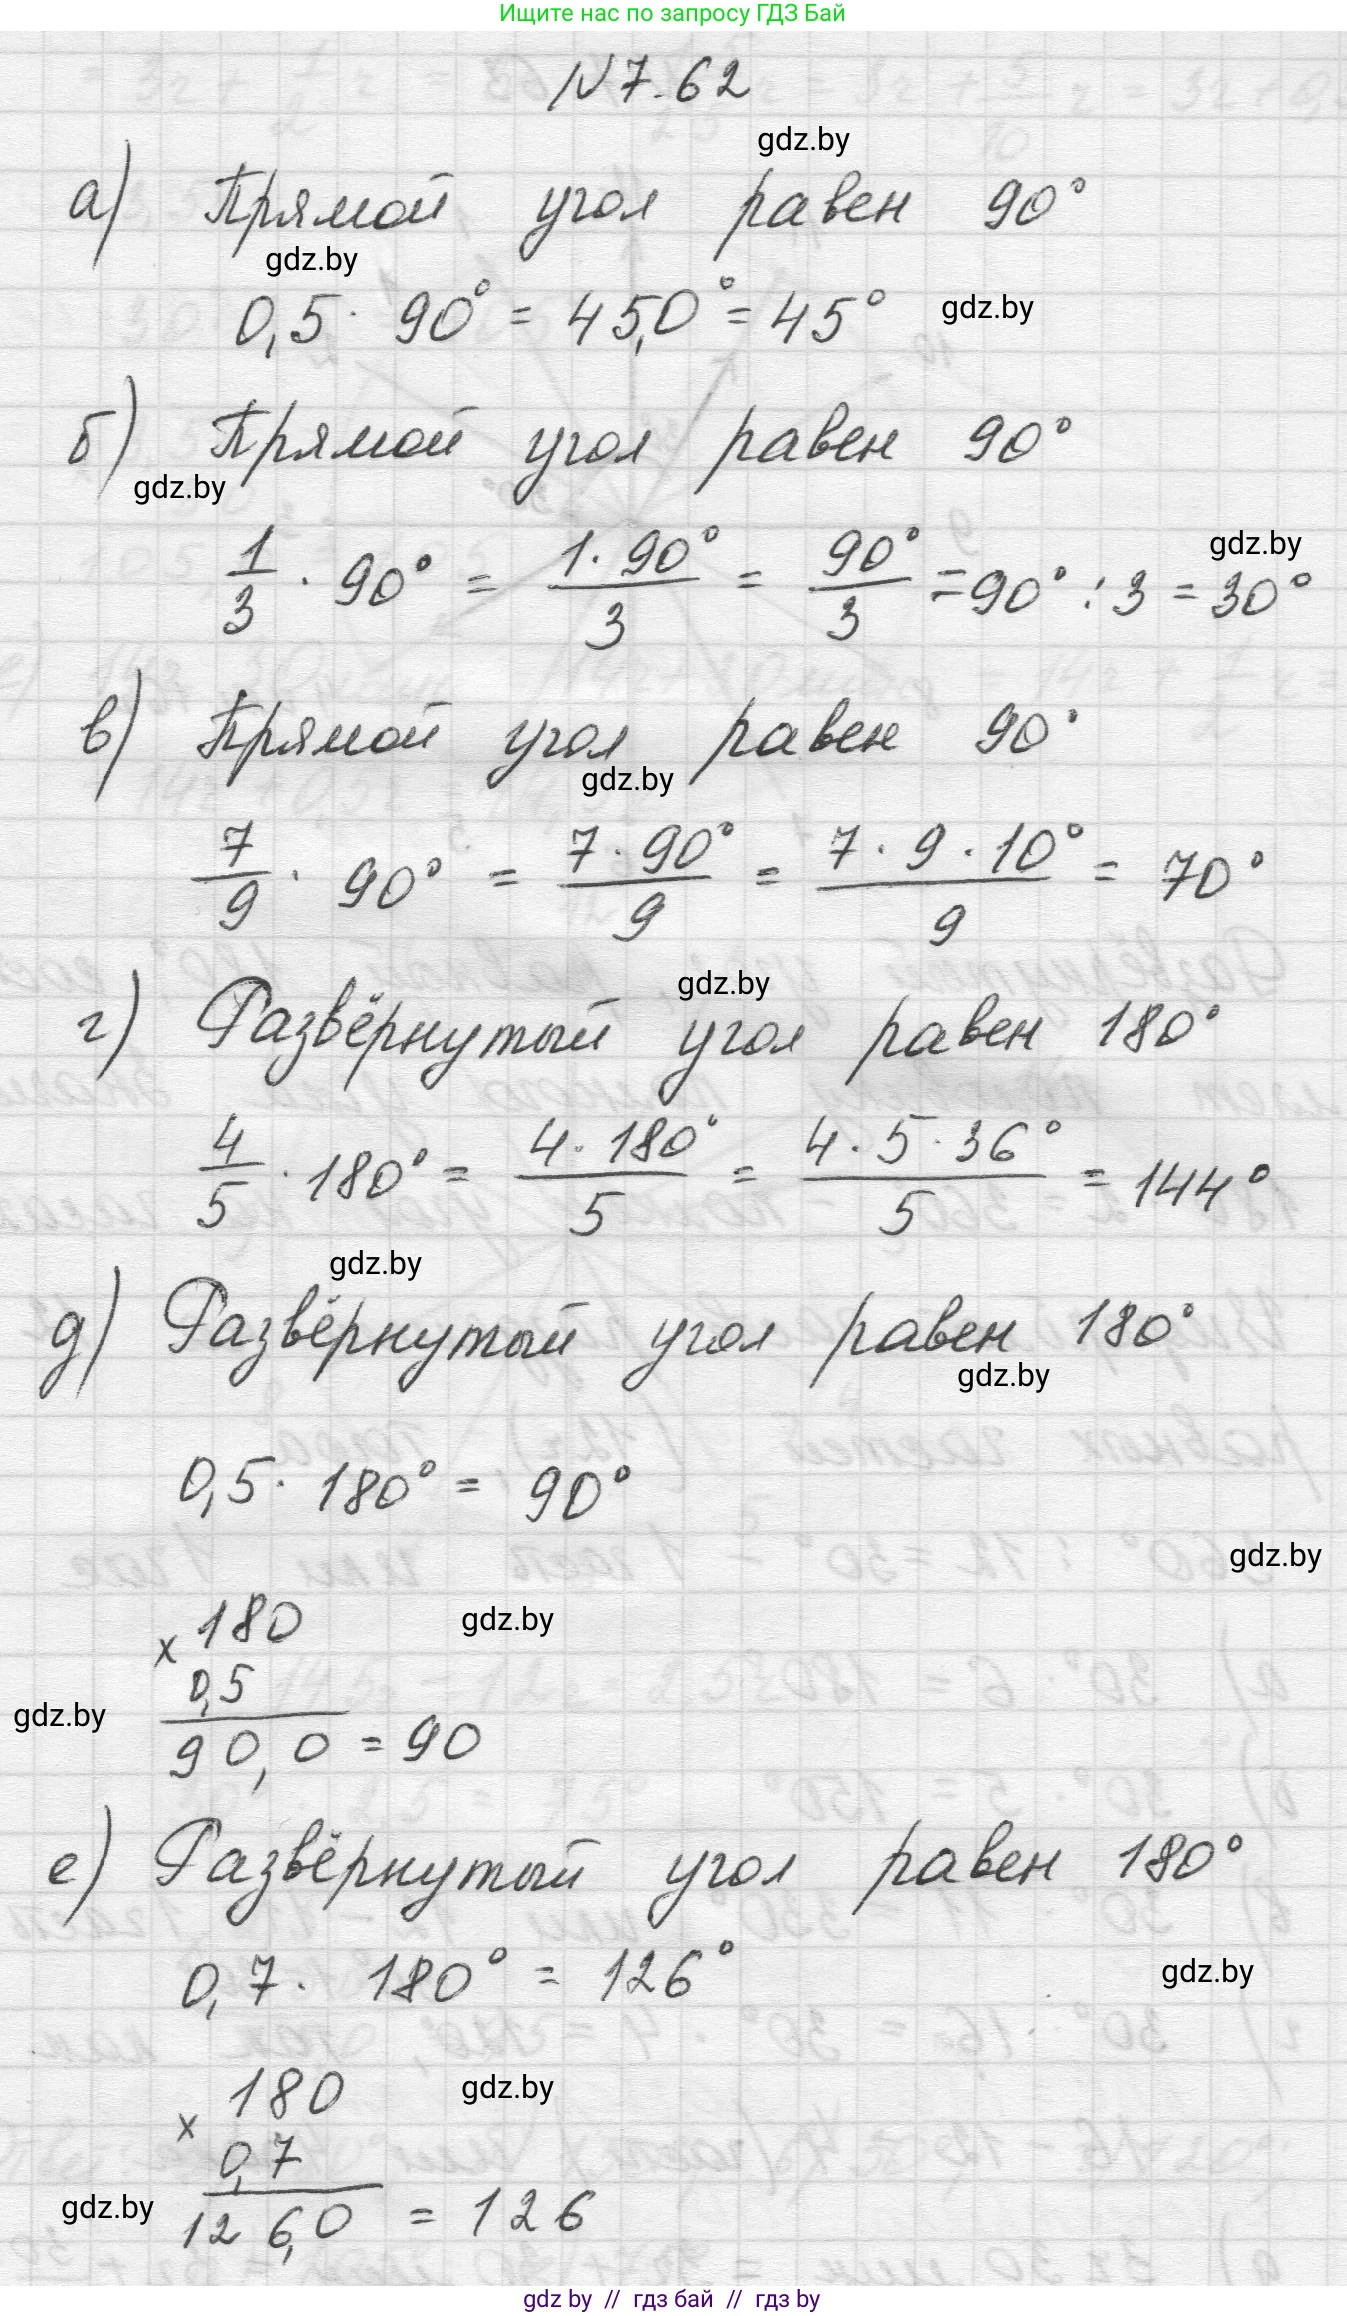 Ищите нас по запросу ГДЗ Бай
№7.62
gdz.by
а) Прямой угол равен 90°
gdz.by
0,5 · 90° = 45,0° = 45° gdz.by
б) Прямой угол равен 90°
gdz.by
gdz.by
1/3 · 90° = 1·90°/3 = 90°/3 = 90° : 3 = 30°
в) Прямой угол равен 90°
gdz.by
7/9 · 90° = 7·90°/9 = 7·9·10°/9 = 70°
gdz.by
г) Развёрнутый угол равен 180°
4/5 · 180° = 4·180°/5 = 4·5·36°/5 = 144°
gdz.by
д) Развёрнутый угол равен 180°
gdz.by
0,5 · 180° = 90°
gdz.by
× 180 gdz.by
0,5
gdz.by
90,0 = 90
е) Развёрнутый угол равен 180°
0,7 · 180° = 126°
gdz.by
× 180 gdz.by
0,7
gdz.by 126,0 = 126
gdz by // гдз бай // гдз by